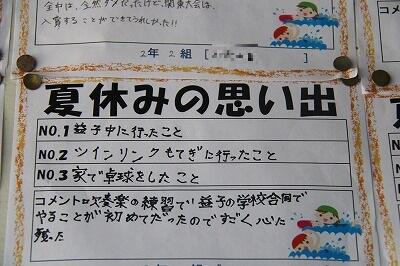 全中は、全然ダメだったけど、関東大会は、
入賞することができてうれしかった!!
2年2組 [
]
夏休みの思い出
コメント
NO.1 益子中に行ったこと
NO.2 ツインリンクもてぎに行ったこと
NO.3 家で卓球をしたこと
コメント 吹奏楽の練習で益子の学校合同で
やることが初めてだったのですごく心に
残った